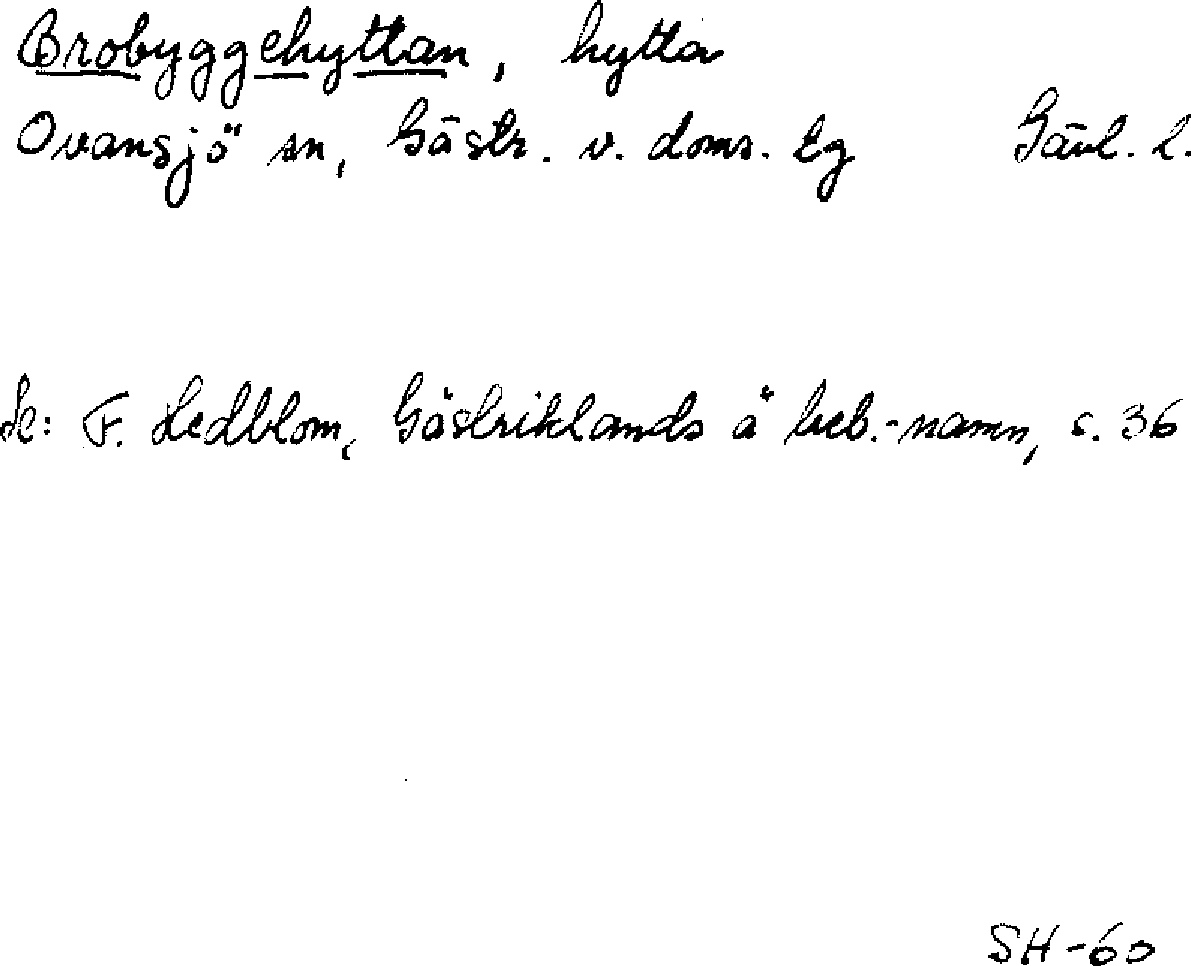 Brobyggehyttan, hytta
Ovansjö sn, Gästr. v. doms. tg Gävl. l.
Se: F. Hedblom, Gästriklands ä beb.-namn, s. 36
SH-60